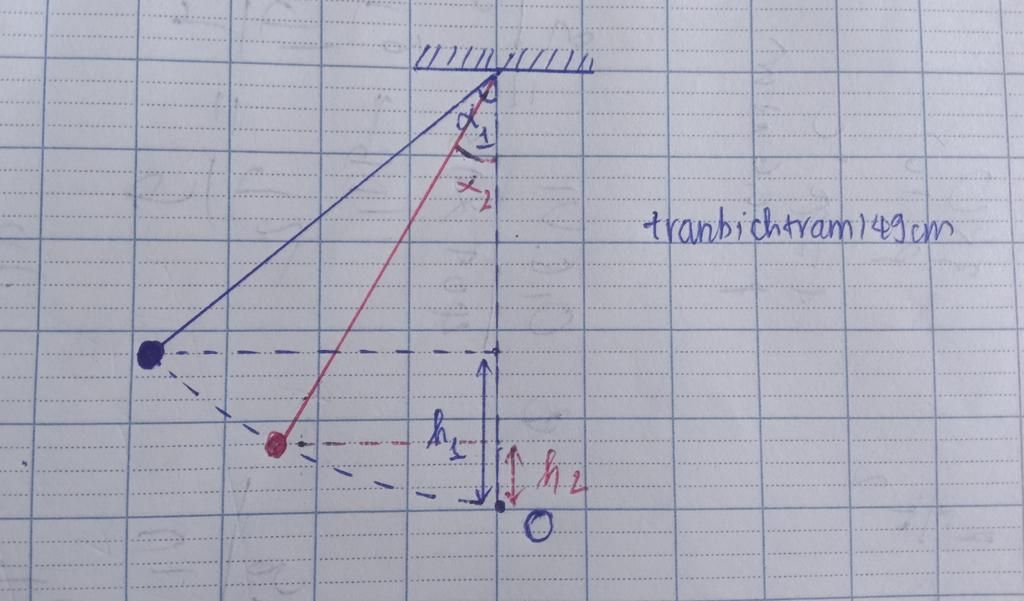 α₁
α₂
tranbichtram149cm
h₁
h₂
O